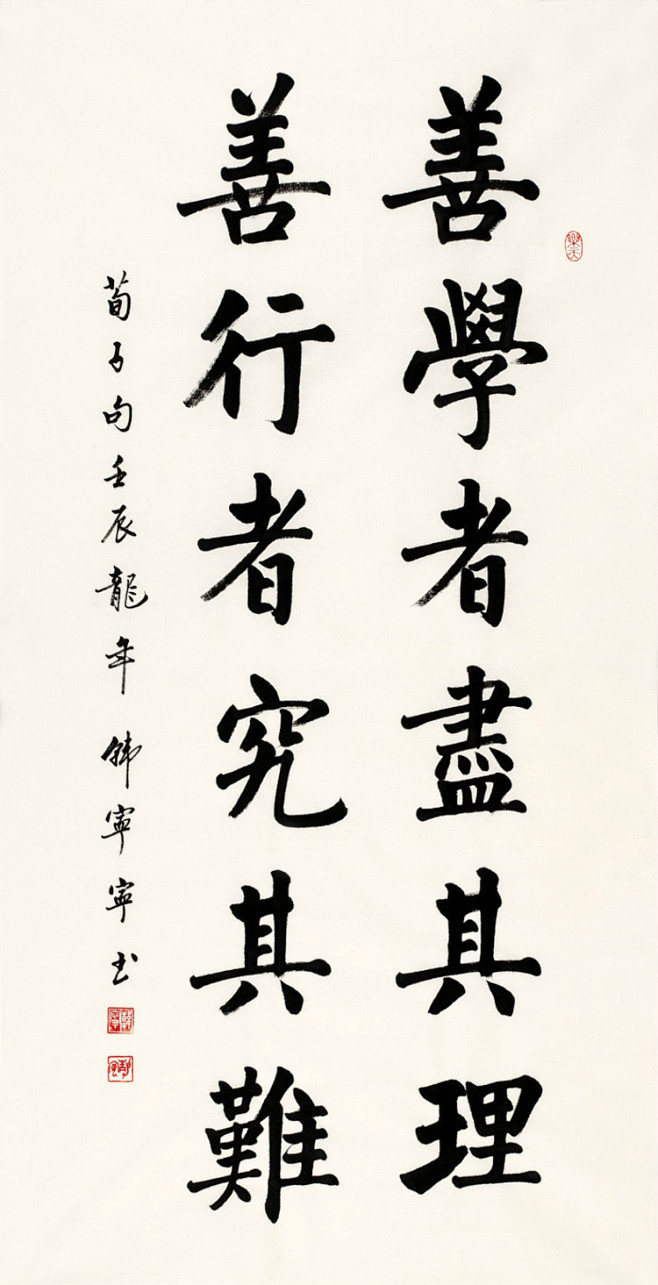 善學者盡其理
善行者究其難
荀子句壬辰龍年韩寧寧书